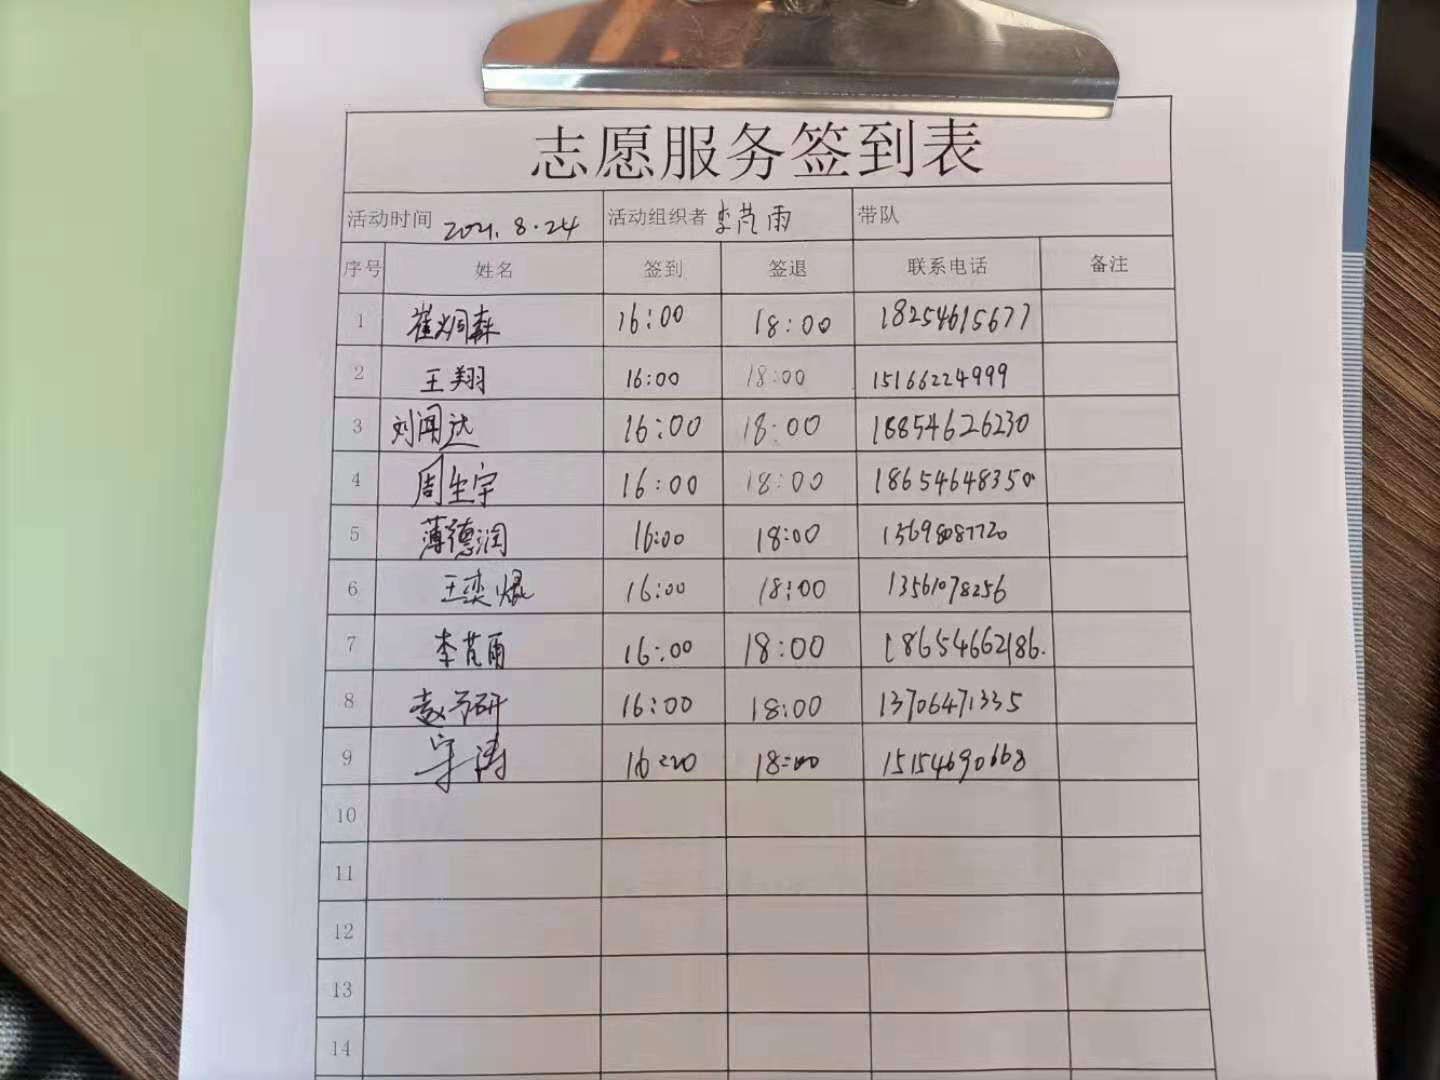 志愿服务签到表
活动时间 2021.8.24 活动组织者 李芃雨 带队
序号 姓名 签到 签退 联系电话 备注
1 崔炯森 16:00 18:00 18254615677
2 王翔 16:00 18:00 15166224999
3 刘闻达 16:00 18:00 18854626230
4 周生宇 16:00 18:00 18654648350
5 薄德润 16:00 18:00 13698087720
6 王奕焜 16:00 18:00 13561078256
7 李芃雨 16:00 18:00 18654662186.
8 赵予研 16:00 18:00 13706471335
9 18:00 15154690668
10
11
12
13
14